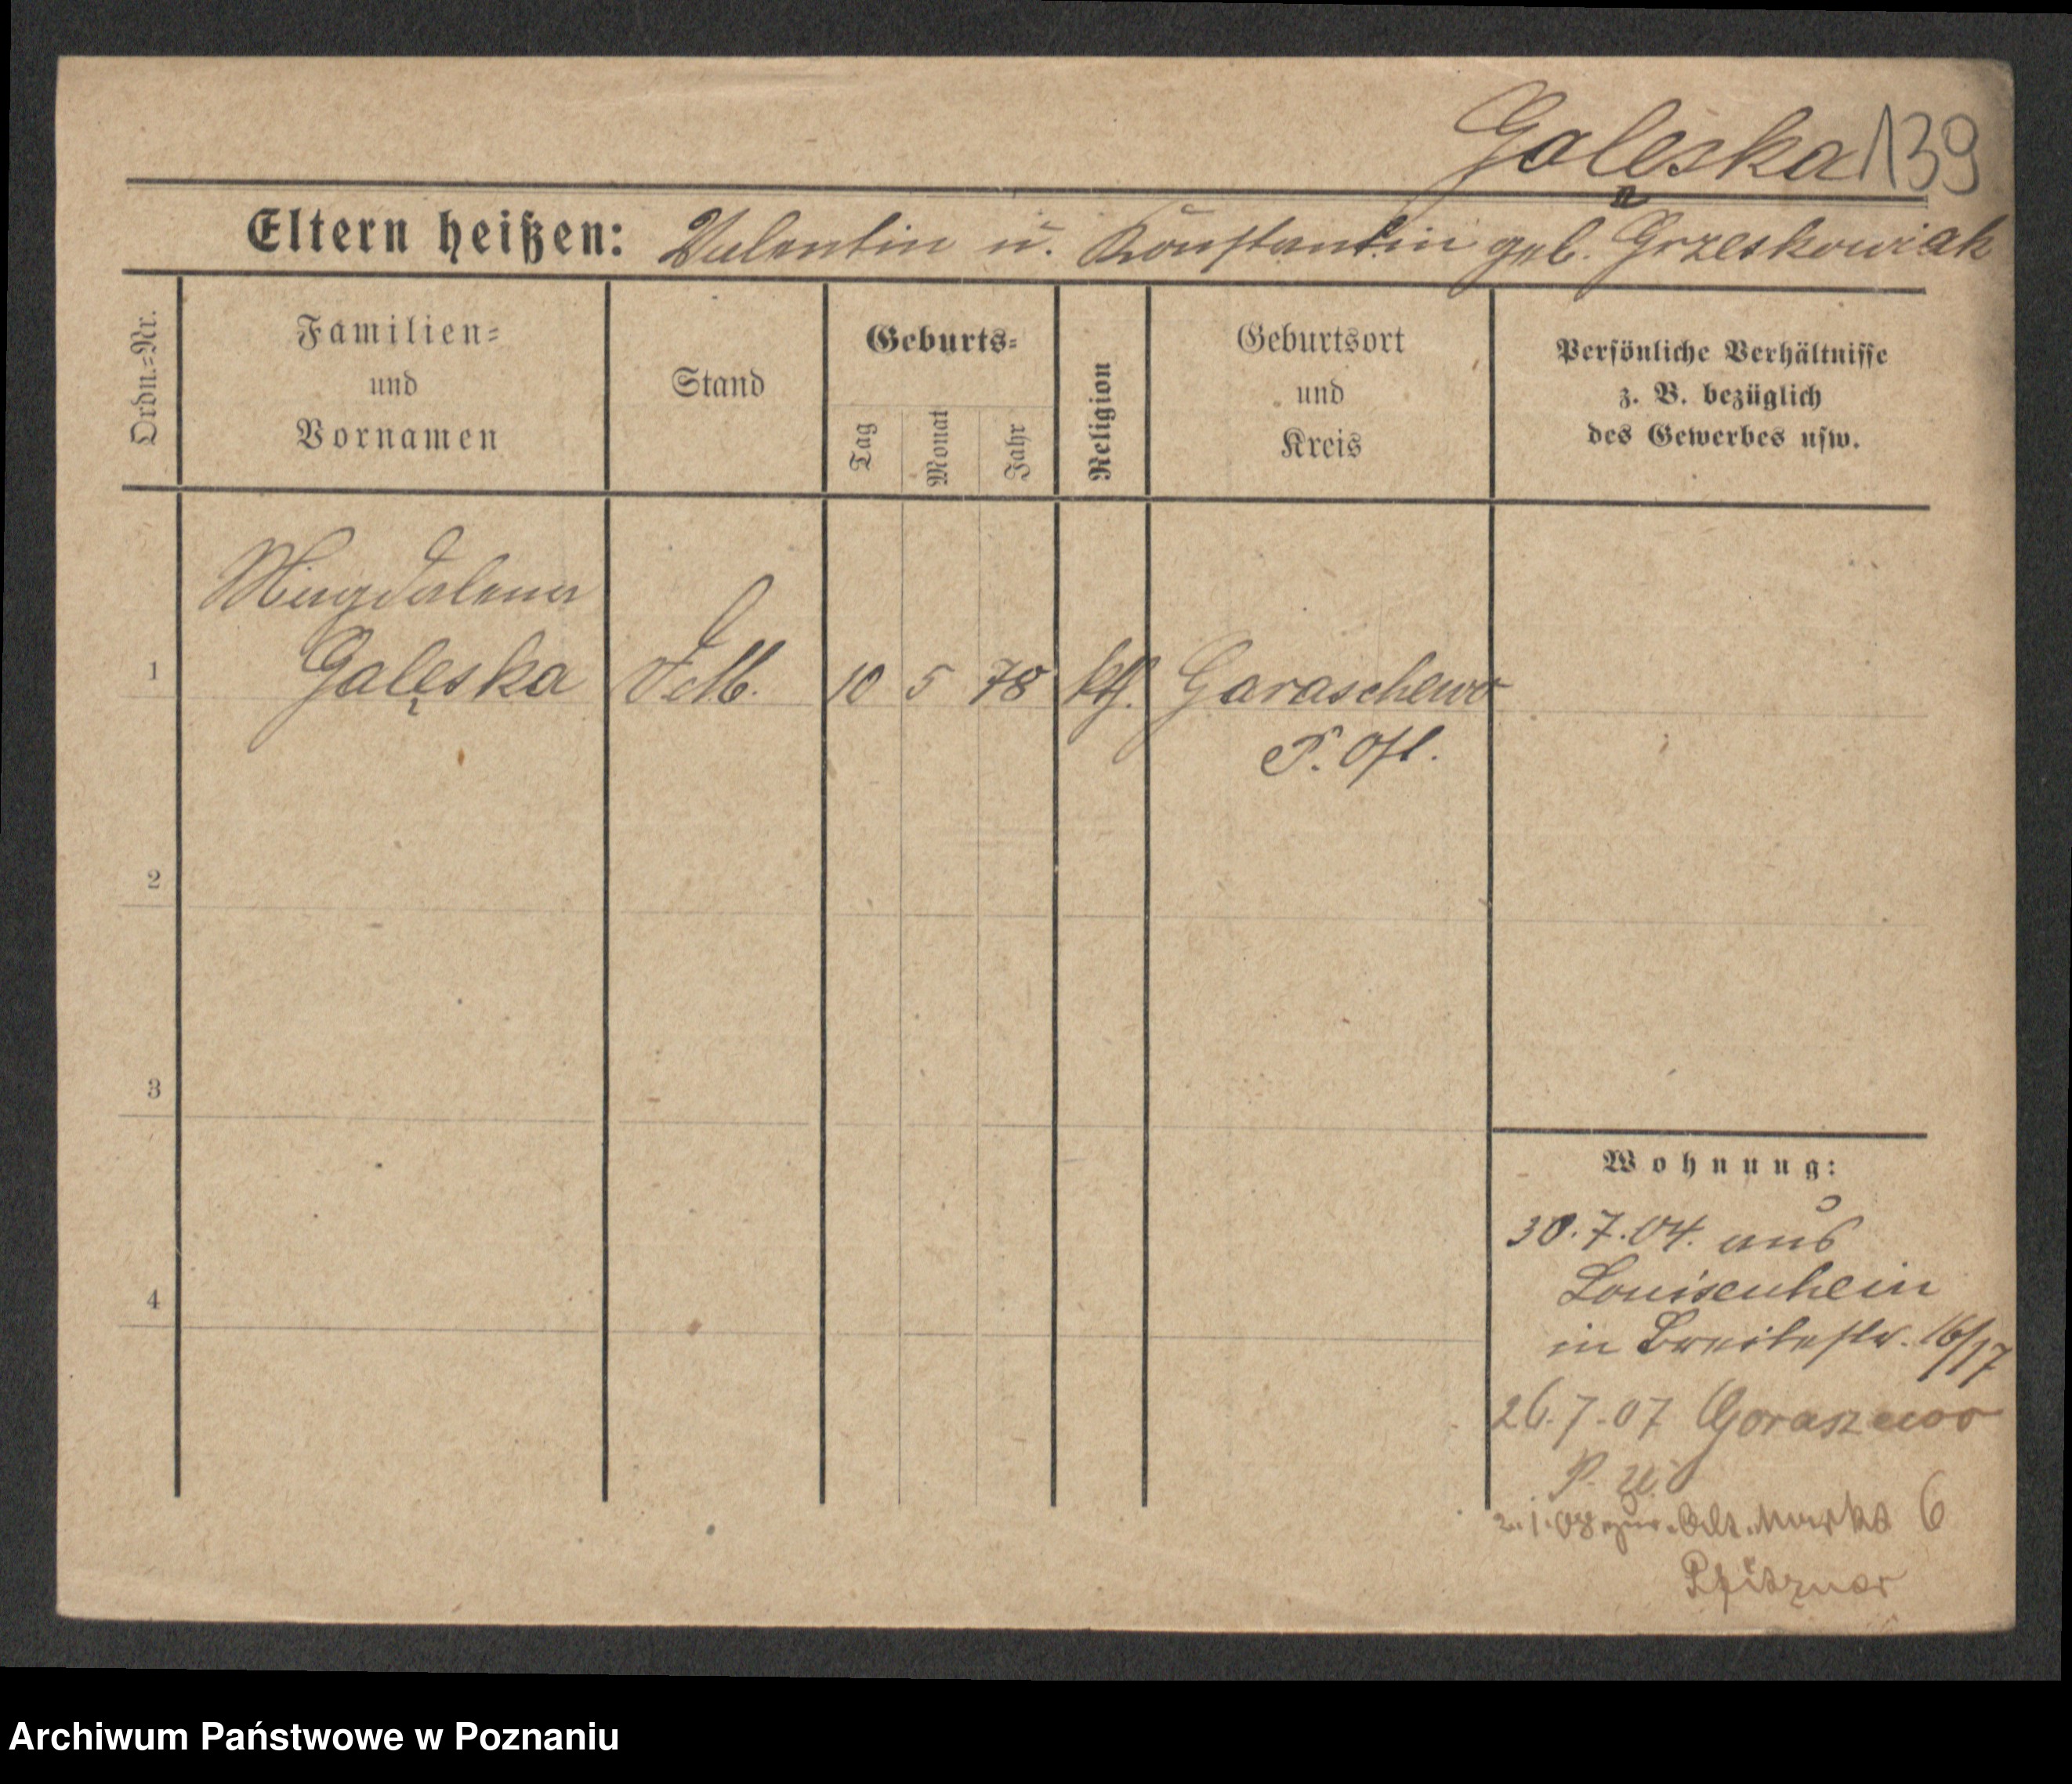 Galęska 139
Eltern heißen: Valentin u. Konstantin geb. Grzeskowiak
Ordn.=Nr.
Familien=
und
Vornamen
Stand
Geburts=
Tag
Monat
Jahr
Religion
Geburtsort
und
Kreis
Persönliche Verhältnisse
z. B. bezüglich
des Gewerbes usw.
Magdalena
1 Galęska 10 5 78 kth. Garaschewo
P. Ost.
2
3
4
Wohnung:
30.7.04. aus
Louisenhein
in Breitestr. 16/17
26.7.07 Goraszewo
P.
2.1.08 zur. Alt. Markt 6
Pfitzner
Archiwum Państwowe w Poznaniu